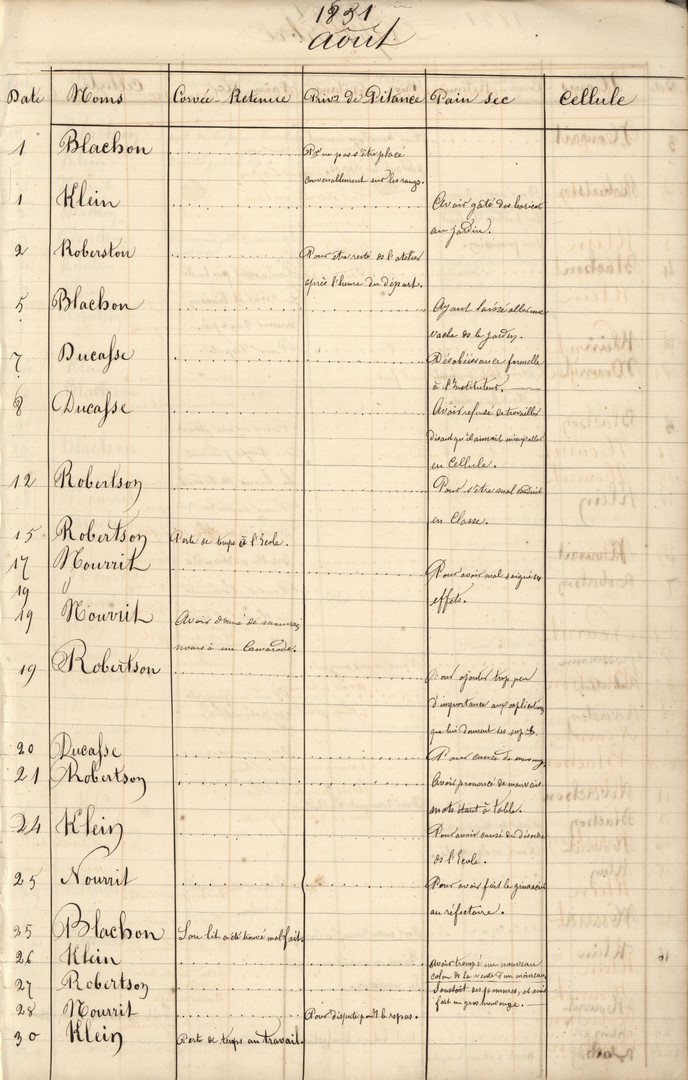 1831
août
Date Noms Corvée-Retenue Privé de Pitance Pain sec Cellule
1 Blachon Pr ne pas s'être placé
convenablement sur les rangs.
1 Klein Avoir gâté des
au jardin.
2 Roberston Pour être resté de l'atelier
après l'heure du départ.
5 Blachon Ayant laissé aller une
vache de le jardin.
7 Ducasse Désobéissance formelle
à l'Instituteur.
8 Ducasse Avoir refusé de travailler
disant qu'il aimait mieux aller
en Cellule.
12 Robertson Pour s'être mal conduit
en Classe.
15 Robertson Perte de temps à l'Ecole.
17 Nourrit Pour avoir mal soigné ses
19 effets.
19 Nourrit Avoir donné de mauvais
noms à un Camarade.
19 Robertson Pour ajouter trop peu
d'importance aux explications
que lui donnent ses
20 Ducasse Pour cause de
21 Robertson Avoir prononcé de mauvais
mots étant à table.
24 Klein Pour avoir causé du désordre
de l'Ecole.
25 Nourrit Pour avoir fait
au réfectoire.
25 Blachon Son lit a été trouvé mal fait.
26 Klein Avoir trompé un nouveau
colon de la vente d'un morceau
27 Robertson Soustrait des pommes, et avoir
fait un gros mensonge.
28 Nourrit Pour dispute pendt le repas.
30 Klein Perte de temps au travail.